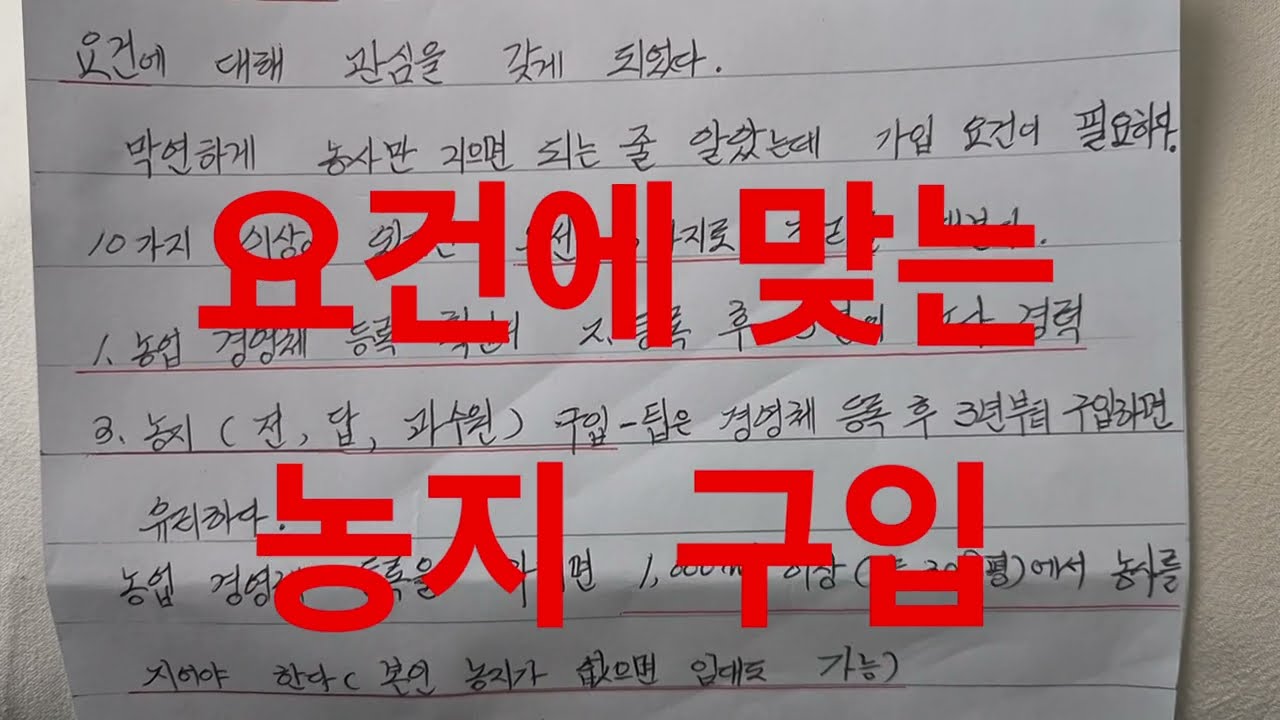 요건에 대해 관심을 갖게 되었다.
막연하게 농사만 지으면 되는 줄 알았는데 가입 요건이 필요하다.
요건에 맞는
10가지 이상
1. 농업 경영체 등록 2. 등록 후 경력
3. 농지 (전, 답, 과수원) 구입-팁은 경영체 등록 후 3년부터 구입하면
농지 구입
유리하다.
농업 이상 평)에서 농사를
지어야 한다( 본인 농지가 없으면 임대도 가능)